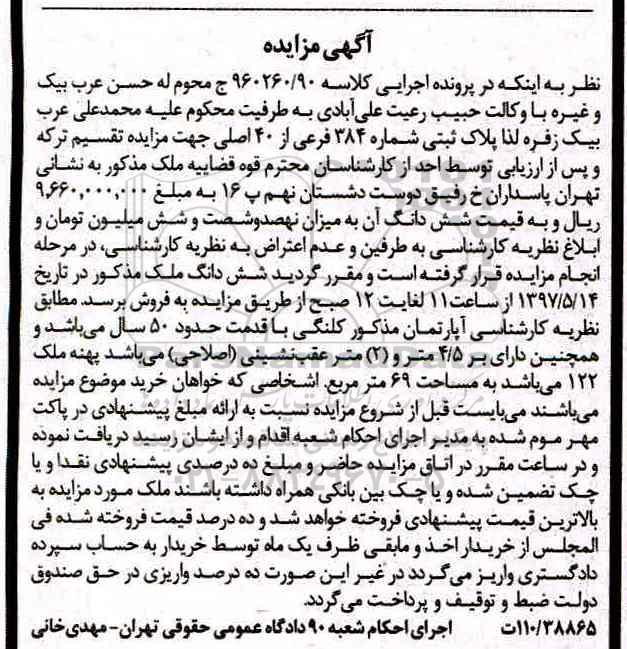 آگهی مزایده
نظر به اینکه در پرونده اجرایی کلاسه ۹۶۰۲۶۰/۹۰ ج محوم له حسن عرب بیک
و غیره با وکالت حبیب رعیت علی‌آبادی به طرفیت محکوم علیه محمدعلی عرب
بیک زفره لذا پلاک ثبتی شماره ۳۸۴ فرعی از ۴۰ اصلی جهت مزایده تقسیم ترکه
و پس از ارزیابی توسط احد از کارشناسان محترم قوه قضاییه ملک مذکور به نشانی
تهران پاسداران خ رفیق دوست دشستان نهم پ ۱۶ به مبلغ ۹,۶۶۰,۰۰۰,۰۰۰
ریال و به قیمت شش دانگ آن به میزان نهصدوشصت و شش میلیون تومان و
ابلاغ نظریه کارشناسی به طرفین و عدم اعتراض به نظریه کارشناسی، در مرحله
انجام مزایده قرار گرفته است و مقرر گردید شش دانگ ملک مذکور در تاریخ
۱۳۹۷/۵/۱۴ از ساعت ۱۱ لغایت ۱۲ صبح از طریق مزایده به فروش برسد. مطابق
نظریه کارشناسی آپارتمان مذکور کلنگی با قدمت حدود ۵۰ سال می‌باشد و
همچنین دارای بر ۴/۵ متر و (۲) متر عقب‌نشینی (اصلاحی) می‌باشد پهنه ملک
۱۲۲ می‌باشد به مساحت ۶۹ متر مربع. اشخاصی که خواهان خرید موضوع مزایده
می‌باشند می‌بایست قبل از شروع مزایده نسبت به ارائه مبلغ پیشنهادی در پاکت
مهر موم شده به مدیر اجرای احکام شعبه اقدام و از ایشان رسید دریافت نموده
و در ساعت مقرر در اتاق مزایده حاضر و مبلغ ده درصدی پیشنهادی نقدا و یا
چک تضمین شده و یا چک بین بانکی همراه داشته باشند ملک مورد مزایده به
بالاترین قیمت پیشنهادی فروخته خواهد شد و ده درصد قیمت فروخته شده فی
المجلس از خریدار اخذ و مابقی ظرف یک ماه توسط خریدار به حساب سپرده
دادگستری واریز می‌گردد در غیر این صورت ده درصد واریزی در حق صندوق
دولت ضبط و توقیف و پرداخت می‌گردد.
۱۱۰/۳۸۸۶۵ت اجرای احکام شعبه ۹۰ دادگاه عمومی حقوقی تهران- مهدی‌خانی
ParsNamadData
۰۲۱-۸۸۳۴۹۶۷۰-۵